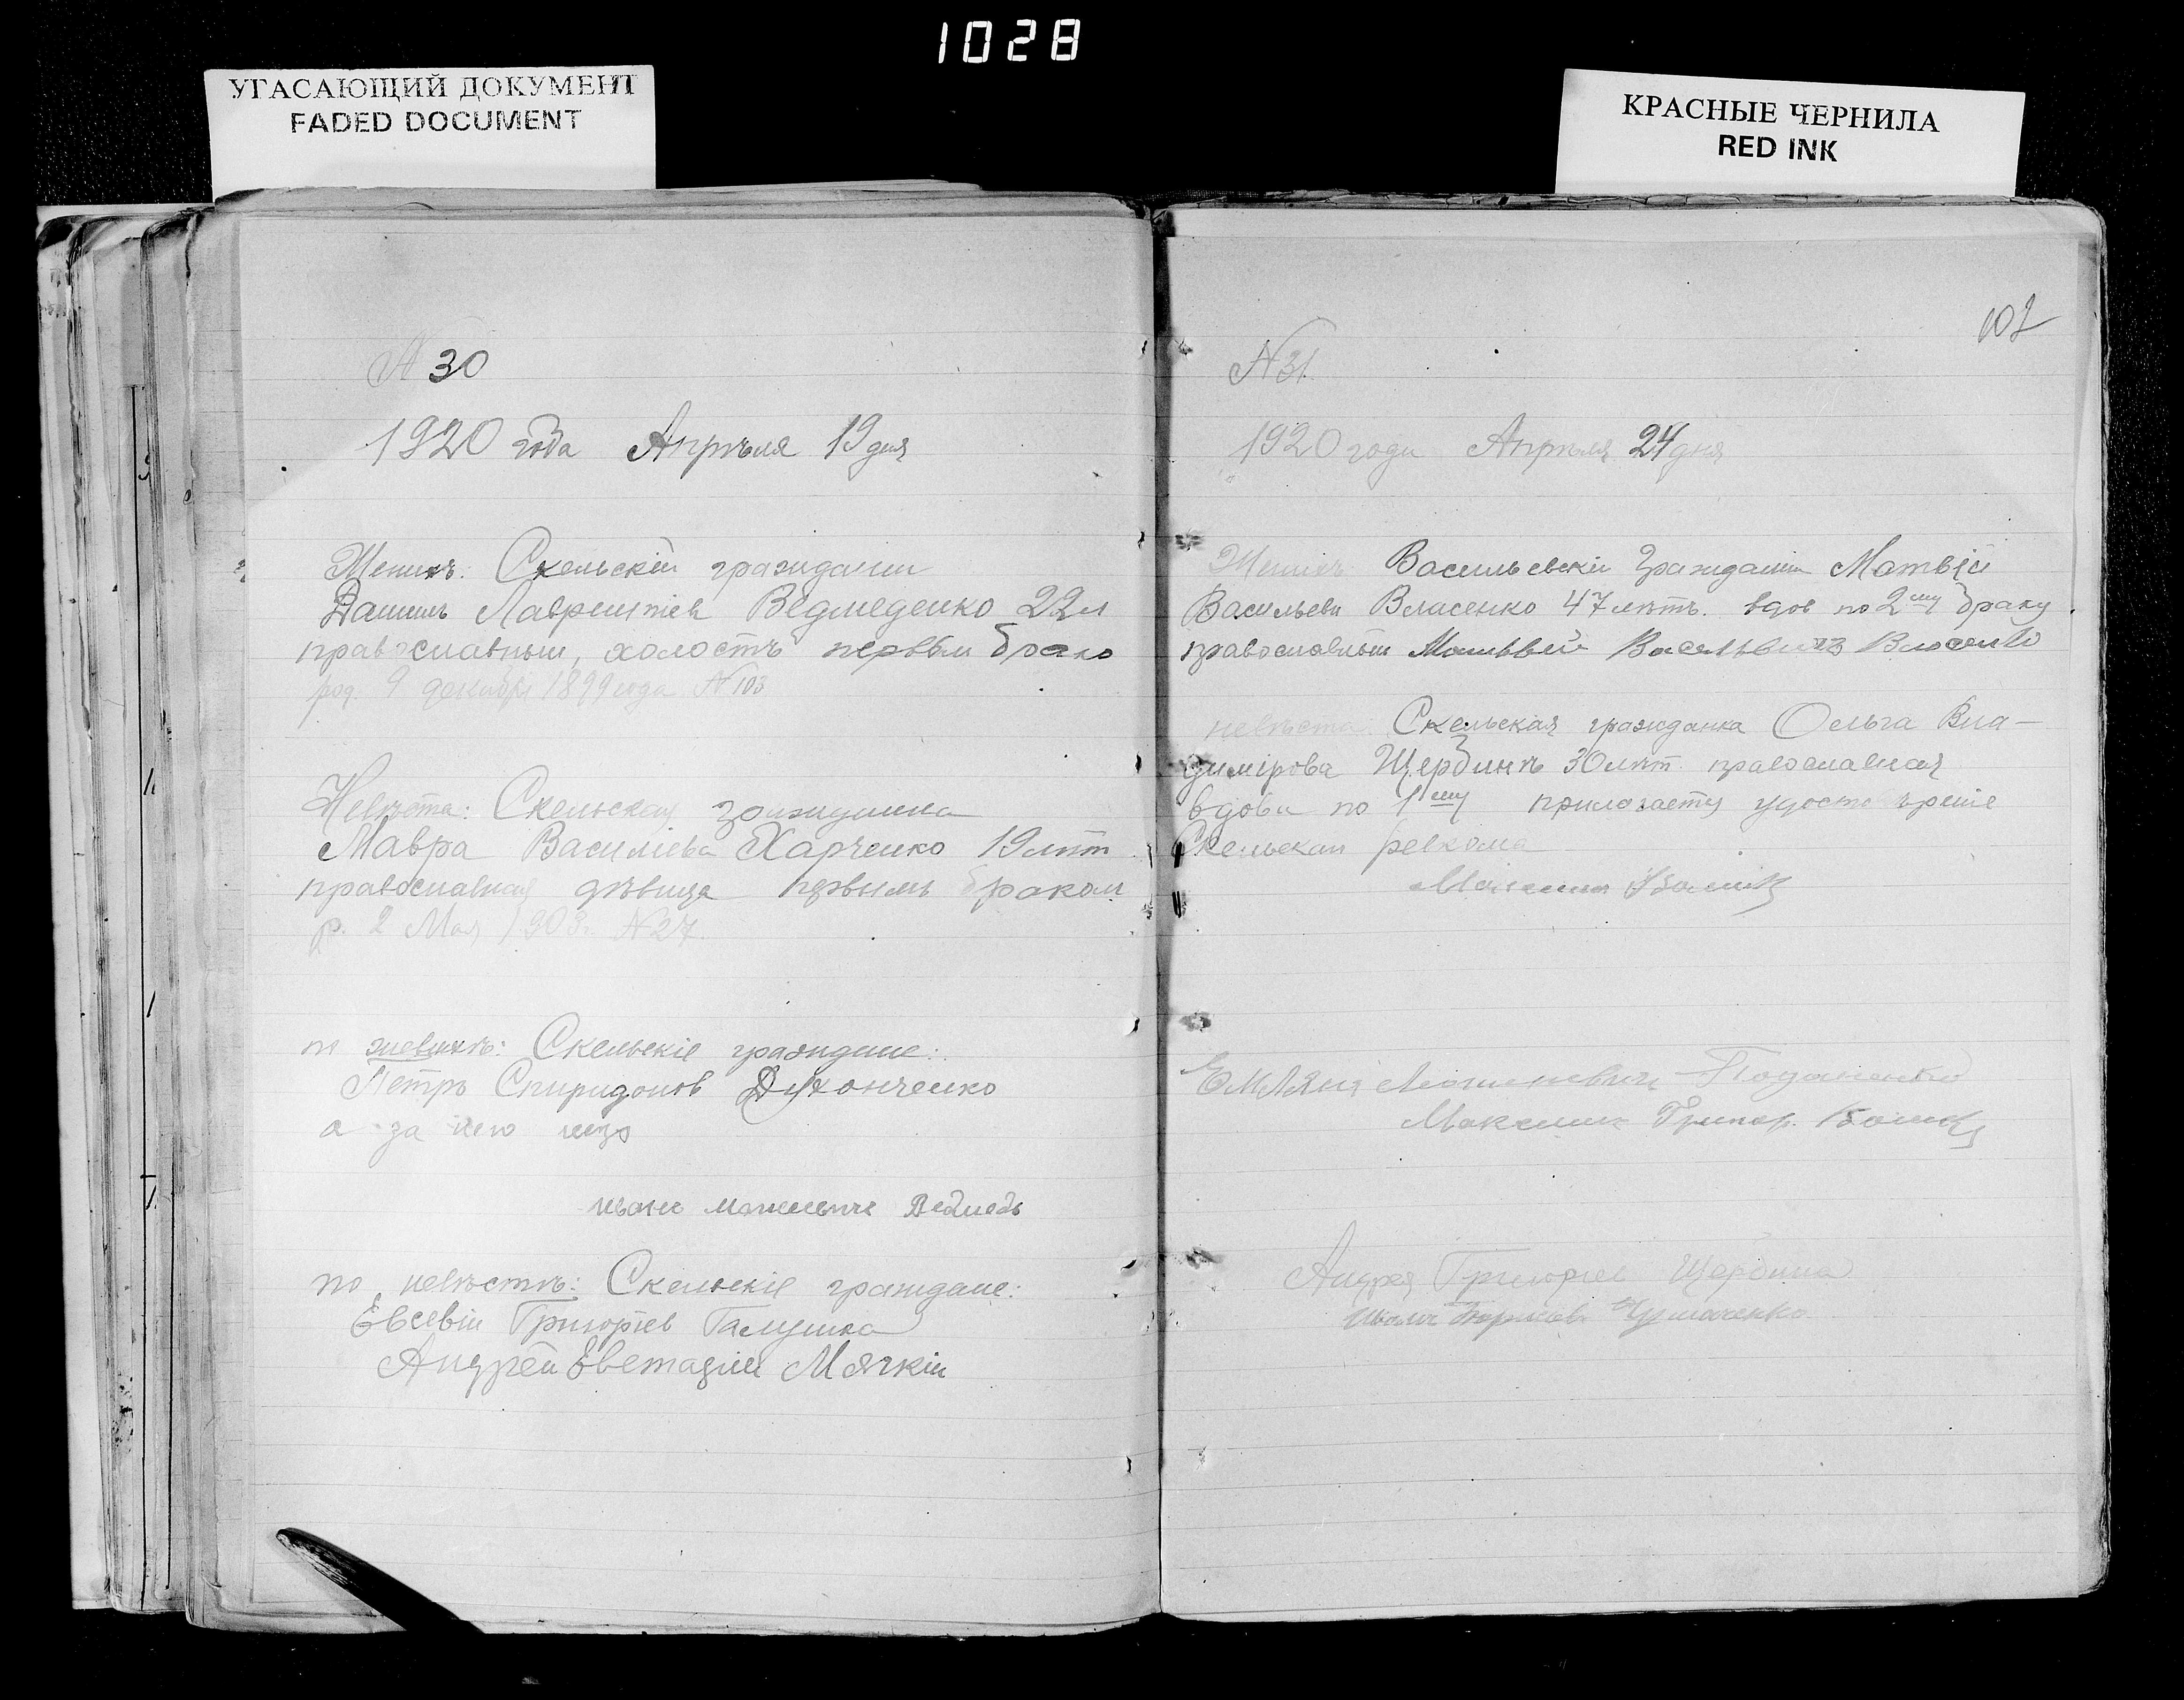 1028
УГАСАЮЩИЙ ДОКУМЕНТ
FADED DOCUMENT
КРАСНЫЕ ЧЕРНИЛА
RED INK
N 30
1920 года Апрѣля 19 дня
Женихъ: Скельскій гражданин
Даниилъ Лаврентіев Ведмеденко 22 л
православный, холостъ первым брако
род. 9 декабря 1899 года N 103
Невѣста: Скельская гражданка
Мавра Василіева Харченко 19 лѣт
православная дѣвица первымъ браком
р. 2 Мая 1903 г. N 27.
по женихѣ: Скельскіе граждане:
Петръ Спиридонов Духонченко
а за него
Иванъ Ведмедь
по невѣстѣ: Скельскіе граждане:
Евсевій Григоріев Галушка
Андрей Мягкій
102
N 31.
1920 года Апрѣля 24 дня
Женихъ Васильевскій Гражданин Матвѣй
Васильевъ Власенко 47 лѣтъ. вдов по 2му браку
православный Матьвей Власенко
невѣста Скельская гражданка Ольга Вла-
димірова Щербинъ 30 лѣт. православная
вдова по 1му прилагаету удосто вреніе
Скельскаи ревкома
Максим
Максим Григор.
Андрей Григоріев Щербина
Иванъ Борисов Чумаченко